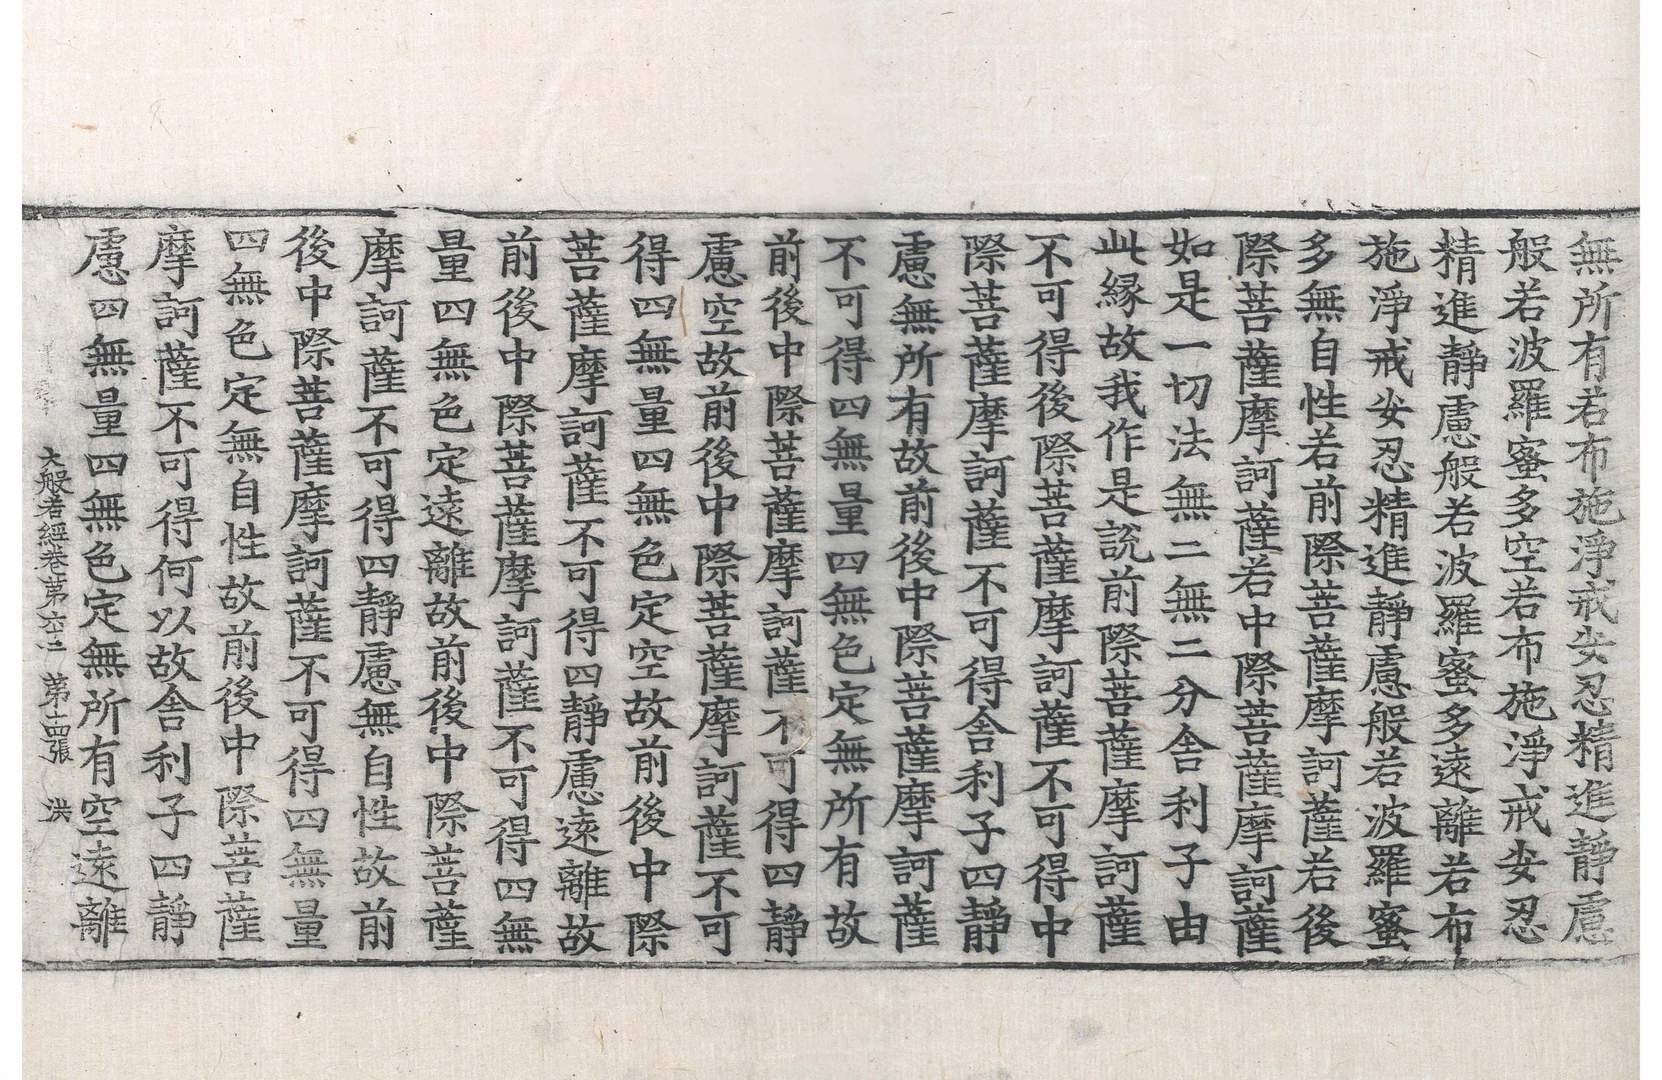 無所有若布施淨戒安忍精進靜慮
般若波羅蜜多空若布施淨戒安忍
精進靜慮般若波羅蜜多遠離若布
施淨戒安忍精進靜慮般若波羅蜜
多無自性若前際菩薩摩訶薩若後
際菩薩摩訶薩若中際菩薩摩訶薩
如是一切法無二無二分舍利子由
此縁故我作是說前際菩薩摩訶薩
不可得後際菩薩摩訶薩不可得中
際菩薩摩訶薩不可得舍利子四靜
慮無所有故前後中際菩薩摩訶薩
不可得四無量四無色定無所有故
前後中際菩薩摩訶薩不可得四靜
慮空故前後中際菩薩摩訶薩不可
得四無量四無色定空故前後中際
菩薩摩訶薩不可得四靜慮遠離故
前後中際菩薩摩訶薩不可得四無
量四無色定遠離故前後中際菩薩
摩訶薩不可得四靜慮無自性故前
後中際菩薩摩訶薩不可得四無量
四無色定無自性故前後中際菩薩
摩訶薩不可得何以故舍利子四靜
慮四無量四無色定無所有空遠離
大般若經卷第六十二 第十四張 洪